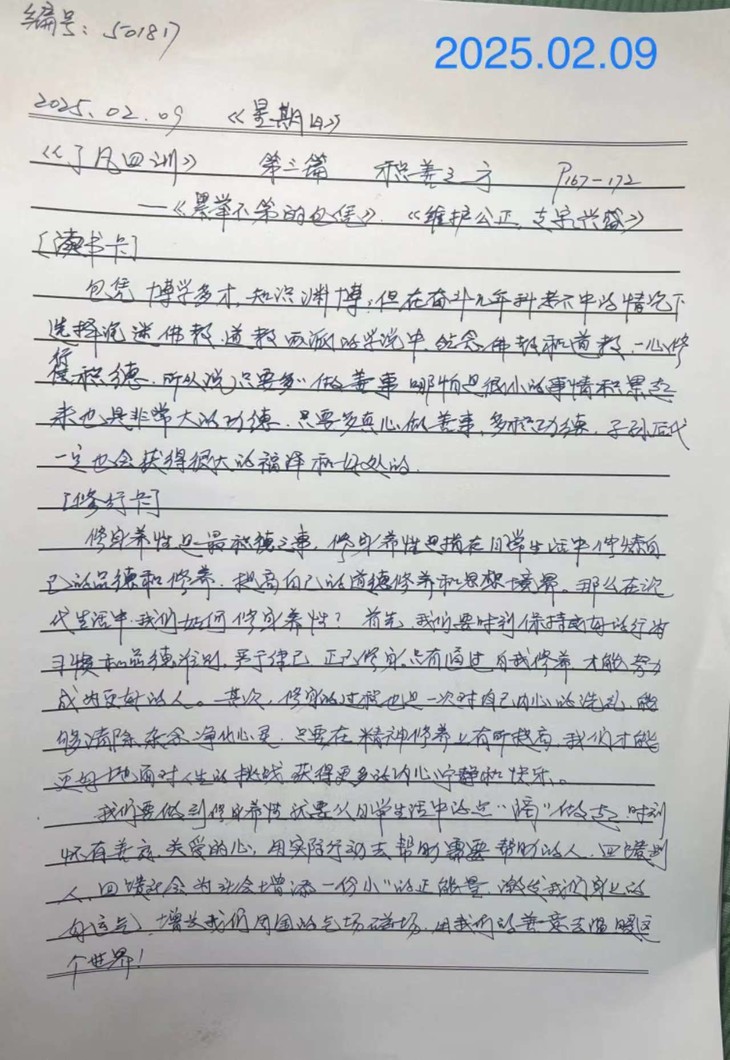 编号：501817
2025.02.09
2025.02.09 《星期日》
《了凡四训》 第三篇 积善之方 P167-172
—《累举不第的包凭》.《维护公正,支宗兴盛》
[读书卡]
包凭 博学多才,知识渊博,但在奋斗九年科考不中的情况下
选择沉迷佛教、道教两派的学说中,信念佛教和道教,一心修
行积德.所以说只要多做善事哪怕是很小的事情积累起
来也是非常大的功德,只要多真心做善事,多积功德,子孙后代
一定也会获得很大的福泽和好处的.
[修行卡]
修身养性是最积德之事,修身养性是指在日常生活中 自
己的品德和修养,提高自己的道德修养和思想境界。那么在现
代生活中,我们如何修身养性？首先,我们要时刻保持良好的行为
习惯和品德准则,严于律己 正己修身,只有通过自我修养 才能努力
成为更好的人。其次,修身的过程也是一次对自己内心的洗礼,能
够清除杂念净化心灵,只要在精神修养上有所提高,我们才能
更好地面对人生的挑战 获得更多的内心宁静和快乐.
我们要做到修身养性 就要从日常生活中的点"滴"做起,时刻
怀有善意,关爱的心,用实际行动去帮助需要帮助的人,回馈别
人,回馈社会 为社会增添一份小"的正能量,激发我们身上的
好运气,增长我们周围的气场磁场,用我们的善意去温暖这
个世界！